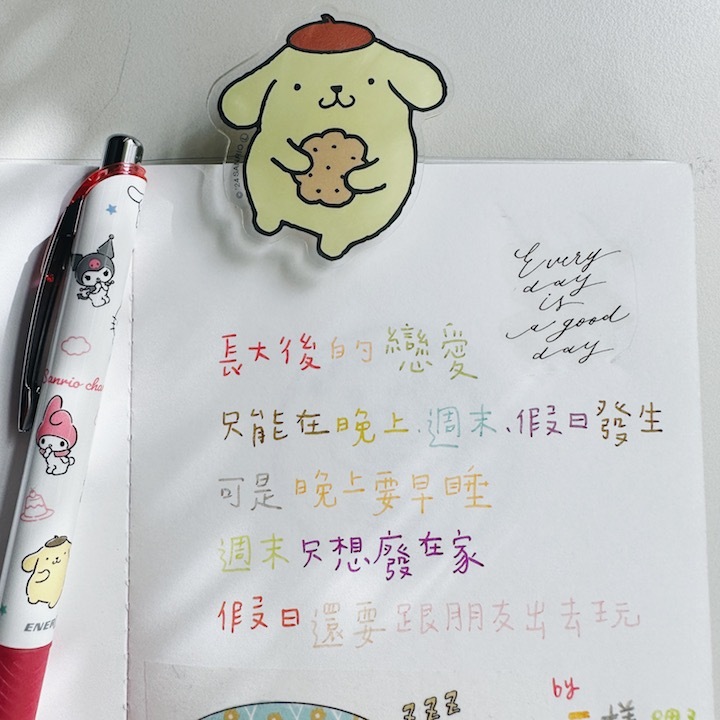 ©'24 SANRIO
Every
day
is
a good
day
長大後的戀愛
只能在晚上、週末、假日發生
可是晚上要早睡
週末只想廢在家
假日還要跟朋友出去玩
Sanrio cha
ENER
zzz
by